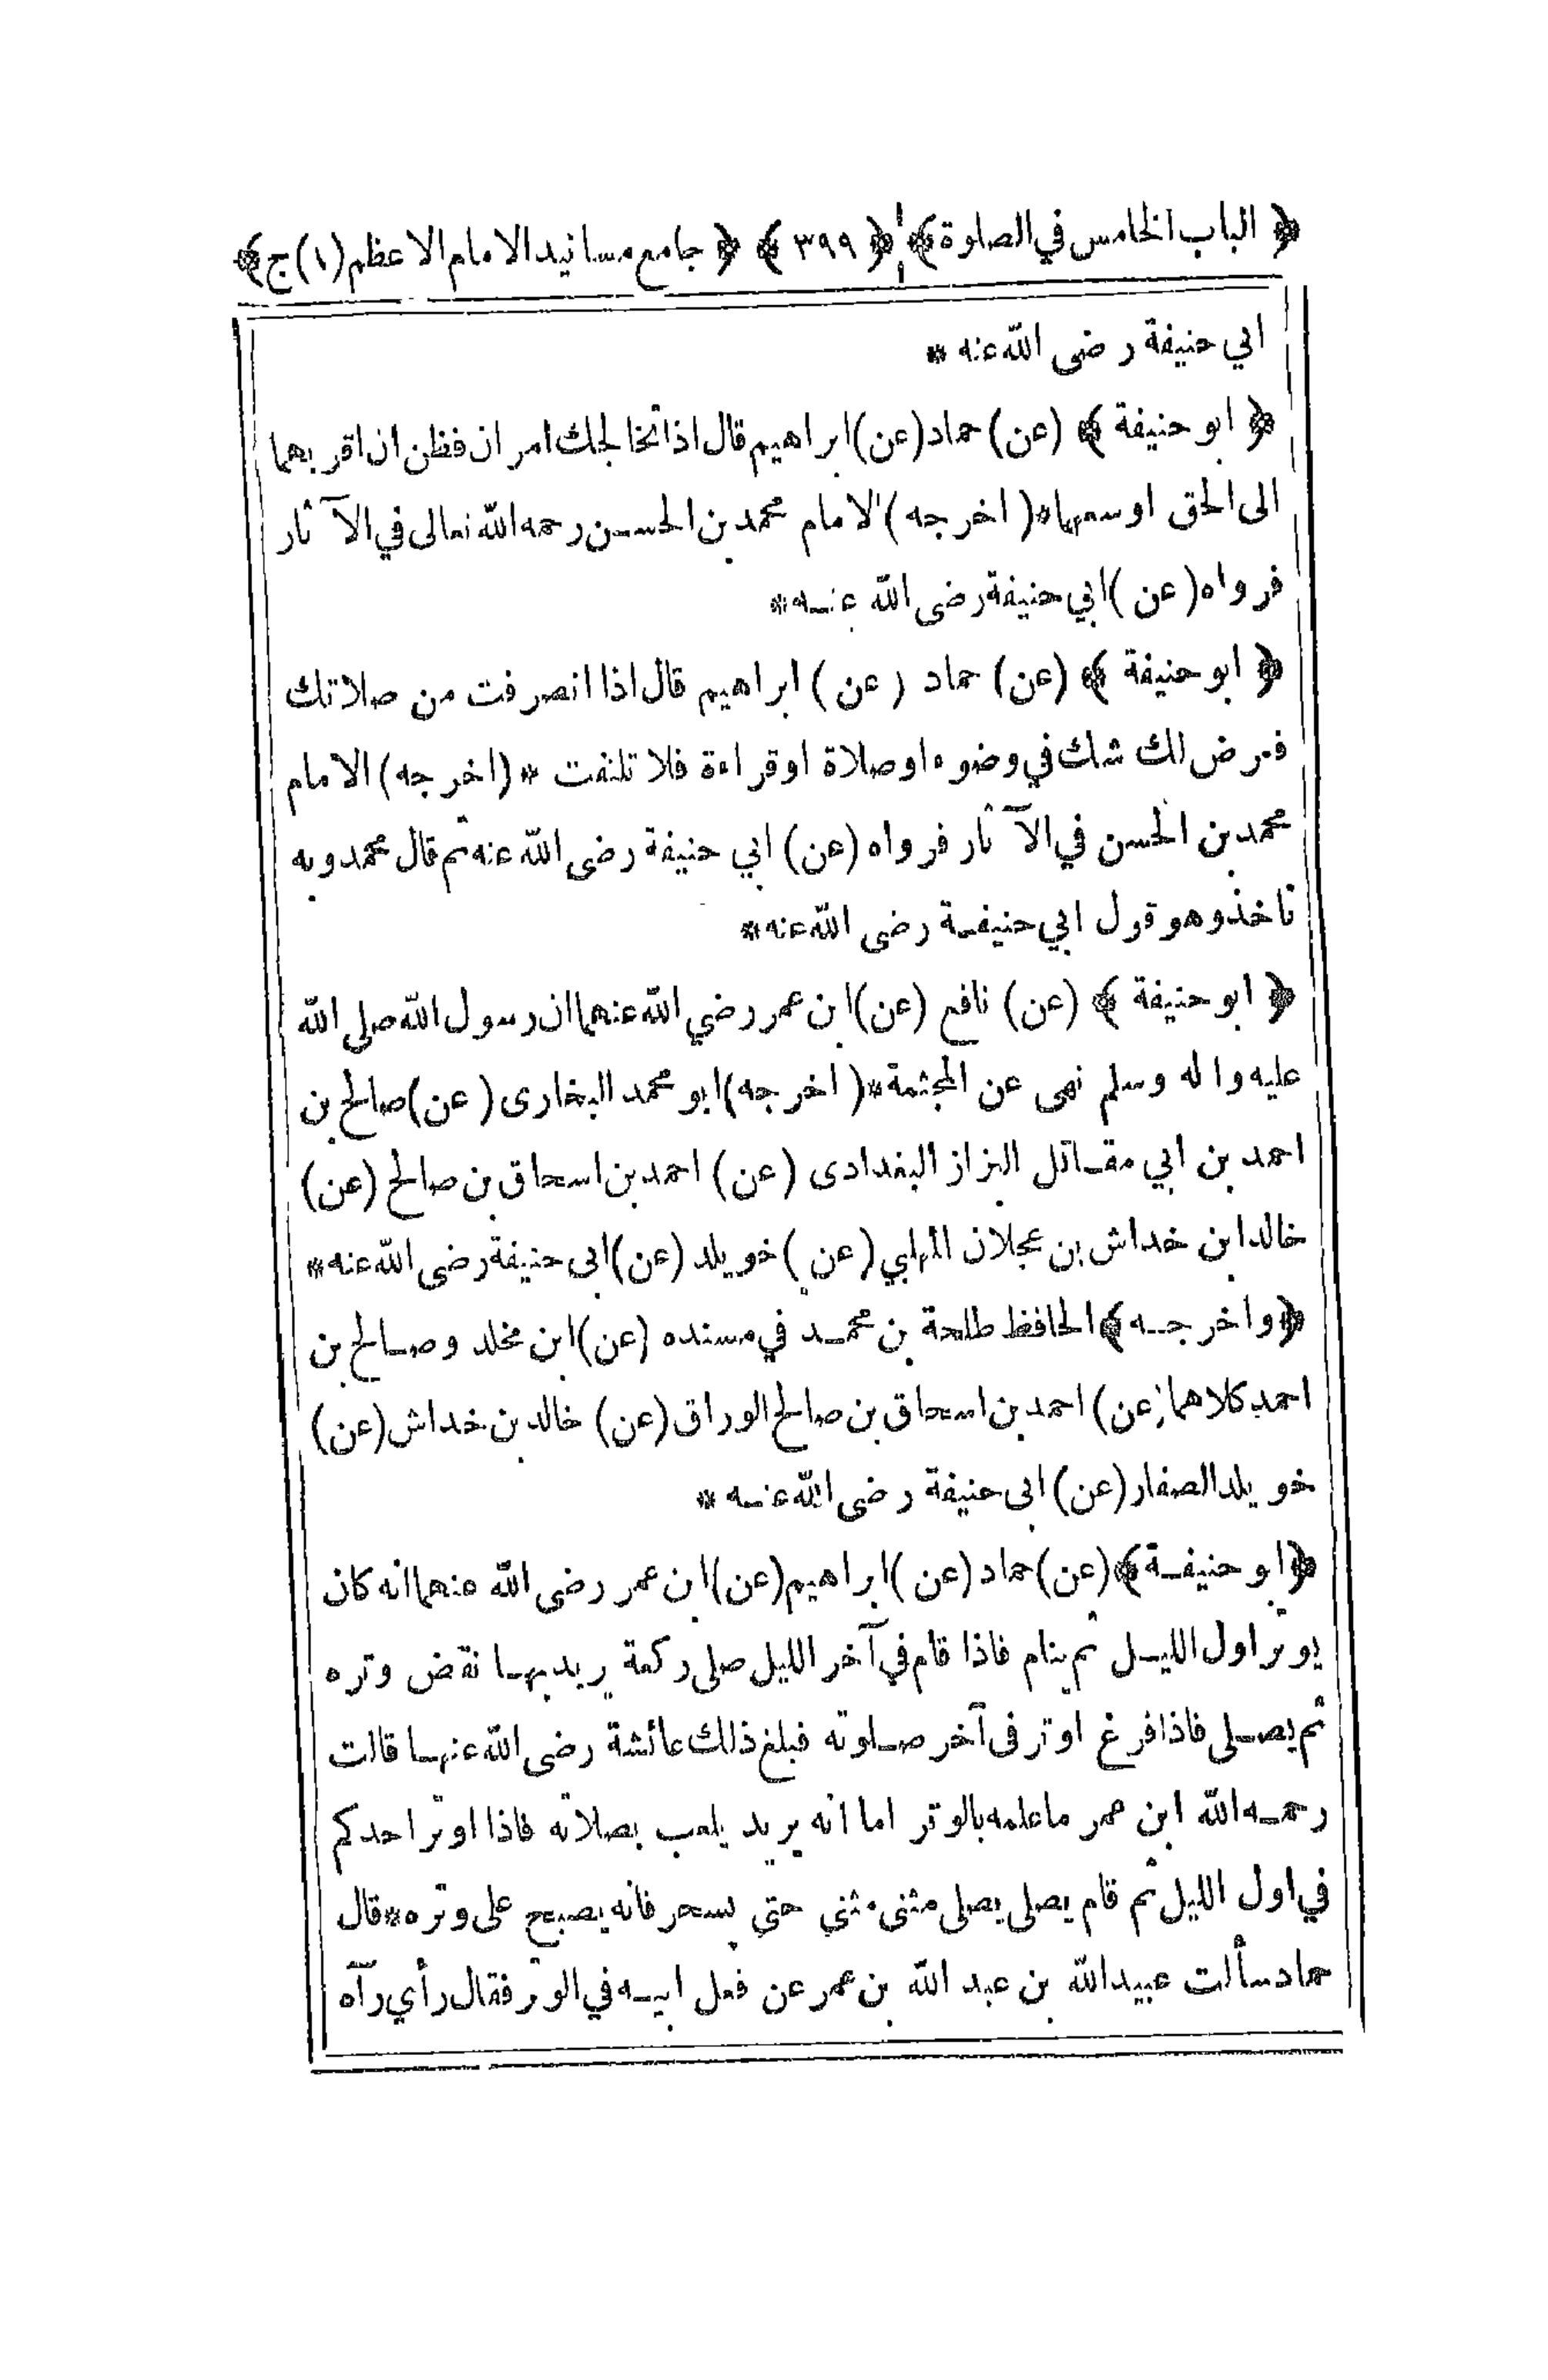 ﴿ الباب الخامس في الصلوة ﴾ ﴿ ٣٩٩ ﴾ ﴿ جامع مسانيد الامام الاعظم (١) ج ﴾
ابي حنيفة رضى الله عنه *
﴿ ابو حنيفة ﴾ (عن) حماد (عن) ابراهيم قال اذا تخالجك امران فظن ان اقربهما
الى الحق اوسعهما * (اخرجه) الامام محمد بن الحسن رحمه الله تعالى في الآثار
فرواه (عن) ابي حنيفة رضى الله عنه *
﴿ ابو حنيفة ﴾ (عن) حماد (عن) ابراهيم قال اذا انصرفت من صلاتك
فعرض لك شك في وضوء او صلاة او قراءة فلا تلتفت * (اخرجه) الامام
محمد بن الحسن في الآثار فرواه (عن) ابي حنيفة رضى الله عنه ثم قال محمد وبه
ناخذ وهو قول ابي حنيفة رضى الله عنه *
﴿ ابو حنيفة ﴾ (عن) نافع (عن) ابن عمر رضي الله عنهما ان رسول الله صلى الله
عليه واله وسلم نهى عن المجثمة * (اخرجه) ابو محمد البخارى (عن) صالح بن
احمد بن ابي مقاتل البزاز البغدادى (عن) احمد بن اسحاق بن صالح (عن)
خالد ابن خداش بن عجلان المهلبي (عن) خويلد (عن) ابى حنيفة رضى الله عنه *
﴿ واخرجه ﴾ الحافظ طلحة بن محمد في مسنده (عن) ابن مخلد وصالح بن
احمد كلاهما (عن) احمد بن اسحاق بن صالح الوراق (عن) خالد بن خداش (عن)
خويلد الصفار (عن) ابى حنيفة رضى الله عنه *
﴿ ابو حنيفة ﴾ (عن) حماد (عن) ابراهيم (عن) ابن عمر رضى الله عنهما انه كان
يوتر اول الليل ثم ينام فاذا قام في آخر الليل صلى ركعة يريد بها نقض وتره
ثم يصلى فاذا فرغ اوتر فى آخر صلوته فبلغ ذلك عائشة رضى الله عنها قالت
رحمه الله ابن عمر ما علمه بالوتر اما انه يريد يلعب بصلاته فاذا اوتر احدكم
في اول الليل ثم قام يصلى يصلى مثنى مثنى حتى يسحر فانه يصبح على وتره * قال
حماد سألت عبيد الله بن عبد الله بن عمر عن فعل ابيه في الوتر فقال رأي رآه